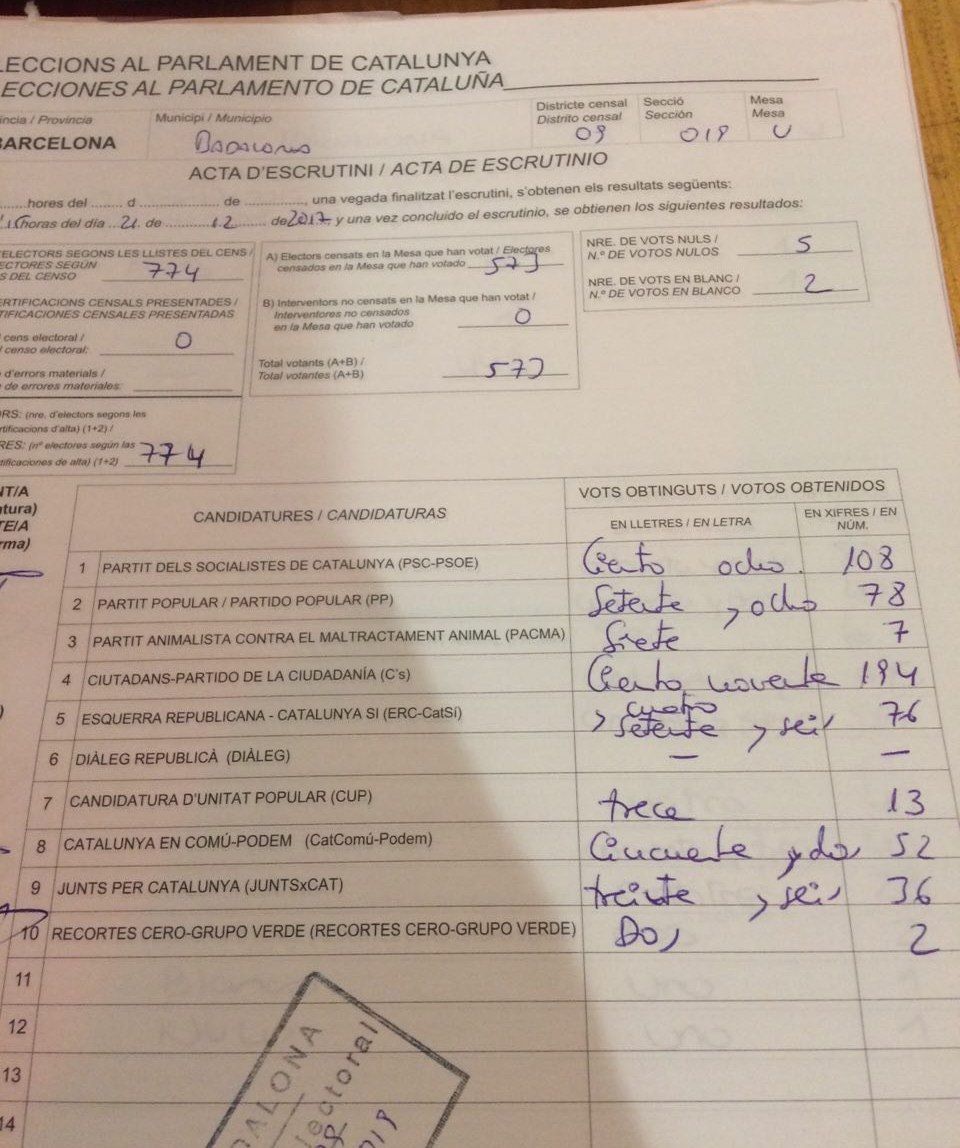 LECCIONS AL PARLAMENT DE CATALUNYA
ECCIONES AL PARLAMENTO DE CATALUÑA
íncia / Provincia
BARCELONA
Municipi / Municipio
Badalona
Districte censal
Distrito censal
09
Secció
Sección
018
Mesa
Mesa
U
ACTA D'ESCRUTINI / ACTA DE ESCRUTINIO
hores del ...... d .................. de .............., una vegada finalitzat l'escrutini, s'obtenen els resultats següents:
horas del día 21 de 12 de 2017 y una vez concluido el escrutinio, se obtienen los siguientes resultados:
ELECTORS SEGONS LES LLISTES DEL CENS /
ECTORES SEGÚN
S DEL CENSO 774
ERTIFICACIONS CENSALS PRESENTADES /
TIFICACIONES CENSALES PRESENTADAS
cens electoral /
l censo electoral: 0
d'errors materials /
de errores materiales:
ORS: (nre. d'electors segons les
rtificacions d'alta) (1+2) /
RES: (nº electores según las
tificaciones de alta) (1+2) 774
A) Electors censats en la Mesa que han votat / Electores
censados en la Mesa que han votado 573
B) Interventors no censats en la Mesa que han votat /
Interventores no censados
en la Mesa que han votado 0
Total votants (A+B) /
Total votantes (A+B) 573
NRE. DE VOTS NULS /
N.º DE VOTOS NULOS 5
NRE. DE VOTS EN BLANC /
N.º DE VOTOS EN BLANCO 2
NT/A
atura)
TE/A
rma)
CANDIDATURES / CANDIDATURAS
VOTS OBTINGUTS / VOTOS OBTENIDOS
EN LLETRES / EN LETRA
EN XIFRES / EN
NÚM.
1 PARTIT DELS SOCIALISTES DE CATALUNYA (PSC-PSOE) Ciento ocho. 108
2 PARTIT POPULAR / PARTIDO POPULAR (PP) Setente y ocho 78
3 PARTIT ANIMALISTA CONTRA EL MALTRACTAMENT ANIMAL (PACMA) Siete 7
4 CIUTADANS-PARTIDO DE LA CIUDADANÍA (C's) Ciento noventa 194
y cuatro
5 ESQUERRA REPUBLICANA - CATALUNYA SI (ERC-CatSí) Setente y seis 76
6 DIÀLEG REPUBLICÀ (DIÀLEG) — —
7 CANDIDATURA D'UNITAT POPULAR (CUP) trece 13
8 CATALUNYA EN COMÚ-PODEM (CatComú-Podem) Cincuente y dos 52
9 JUNTS PER CATALUNYA (JUNTSxCAT) treinte y seis 36
10 RECORTES CERO-GRUPO VERDE (RECORTES CERO-GRUPO VERDE) Dos 2
11
12
13
14
DALONA
lectoral
018